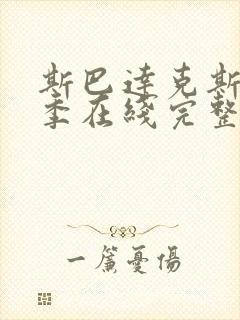 斯巴達克斯
季在綫完整
一簾憂傷